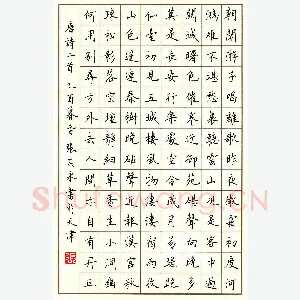 朝聞游子唱離歌昨夜微霜初度河
鴻雁不堪愁裏聽雲山況是客中過
關城曙色催寒近御苑砧聲向晚多
莫是長安行樂處空令歲月易蹉跎
仙臺初見五城樓風物淒淒宿雨收
山色遙連秦樹晚砧聲近報漢宮秋
疏松影落空壇靜細草香生小洞幽
何用別尋方外去人間亦自有丹丘
唐詩二首 乙酉春 張天 書於天津